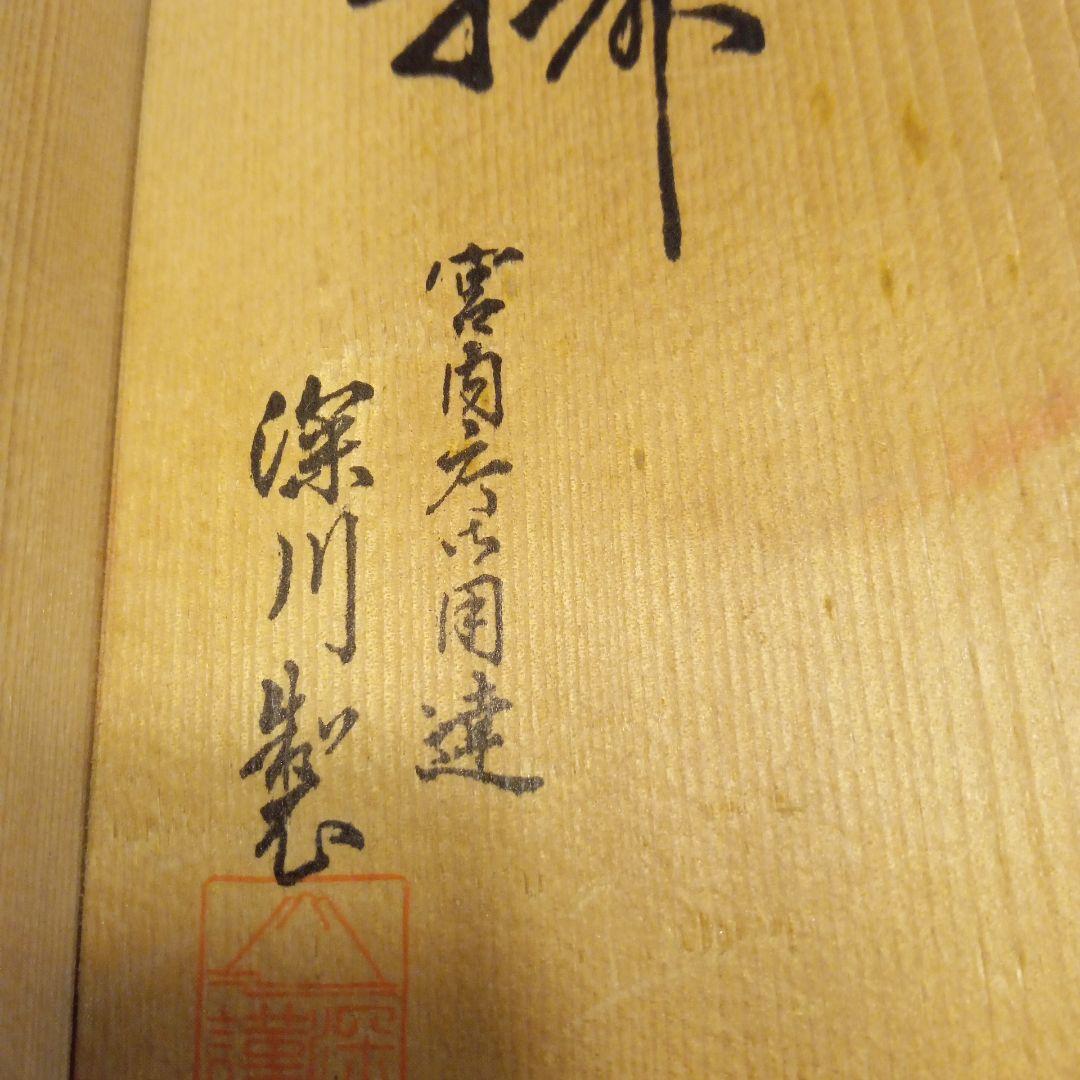 宮内庁御用達
深川製
深
謹